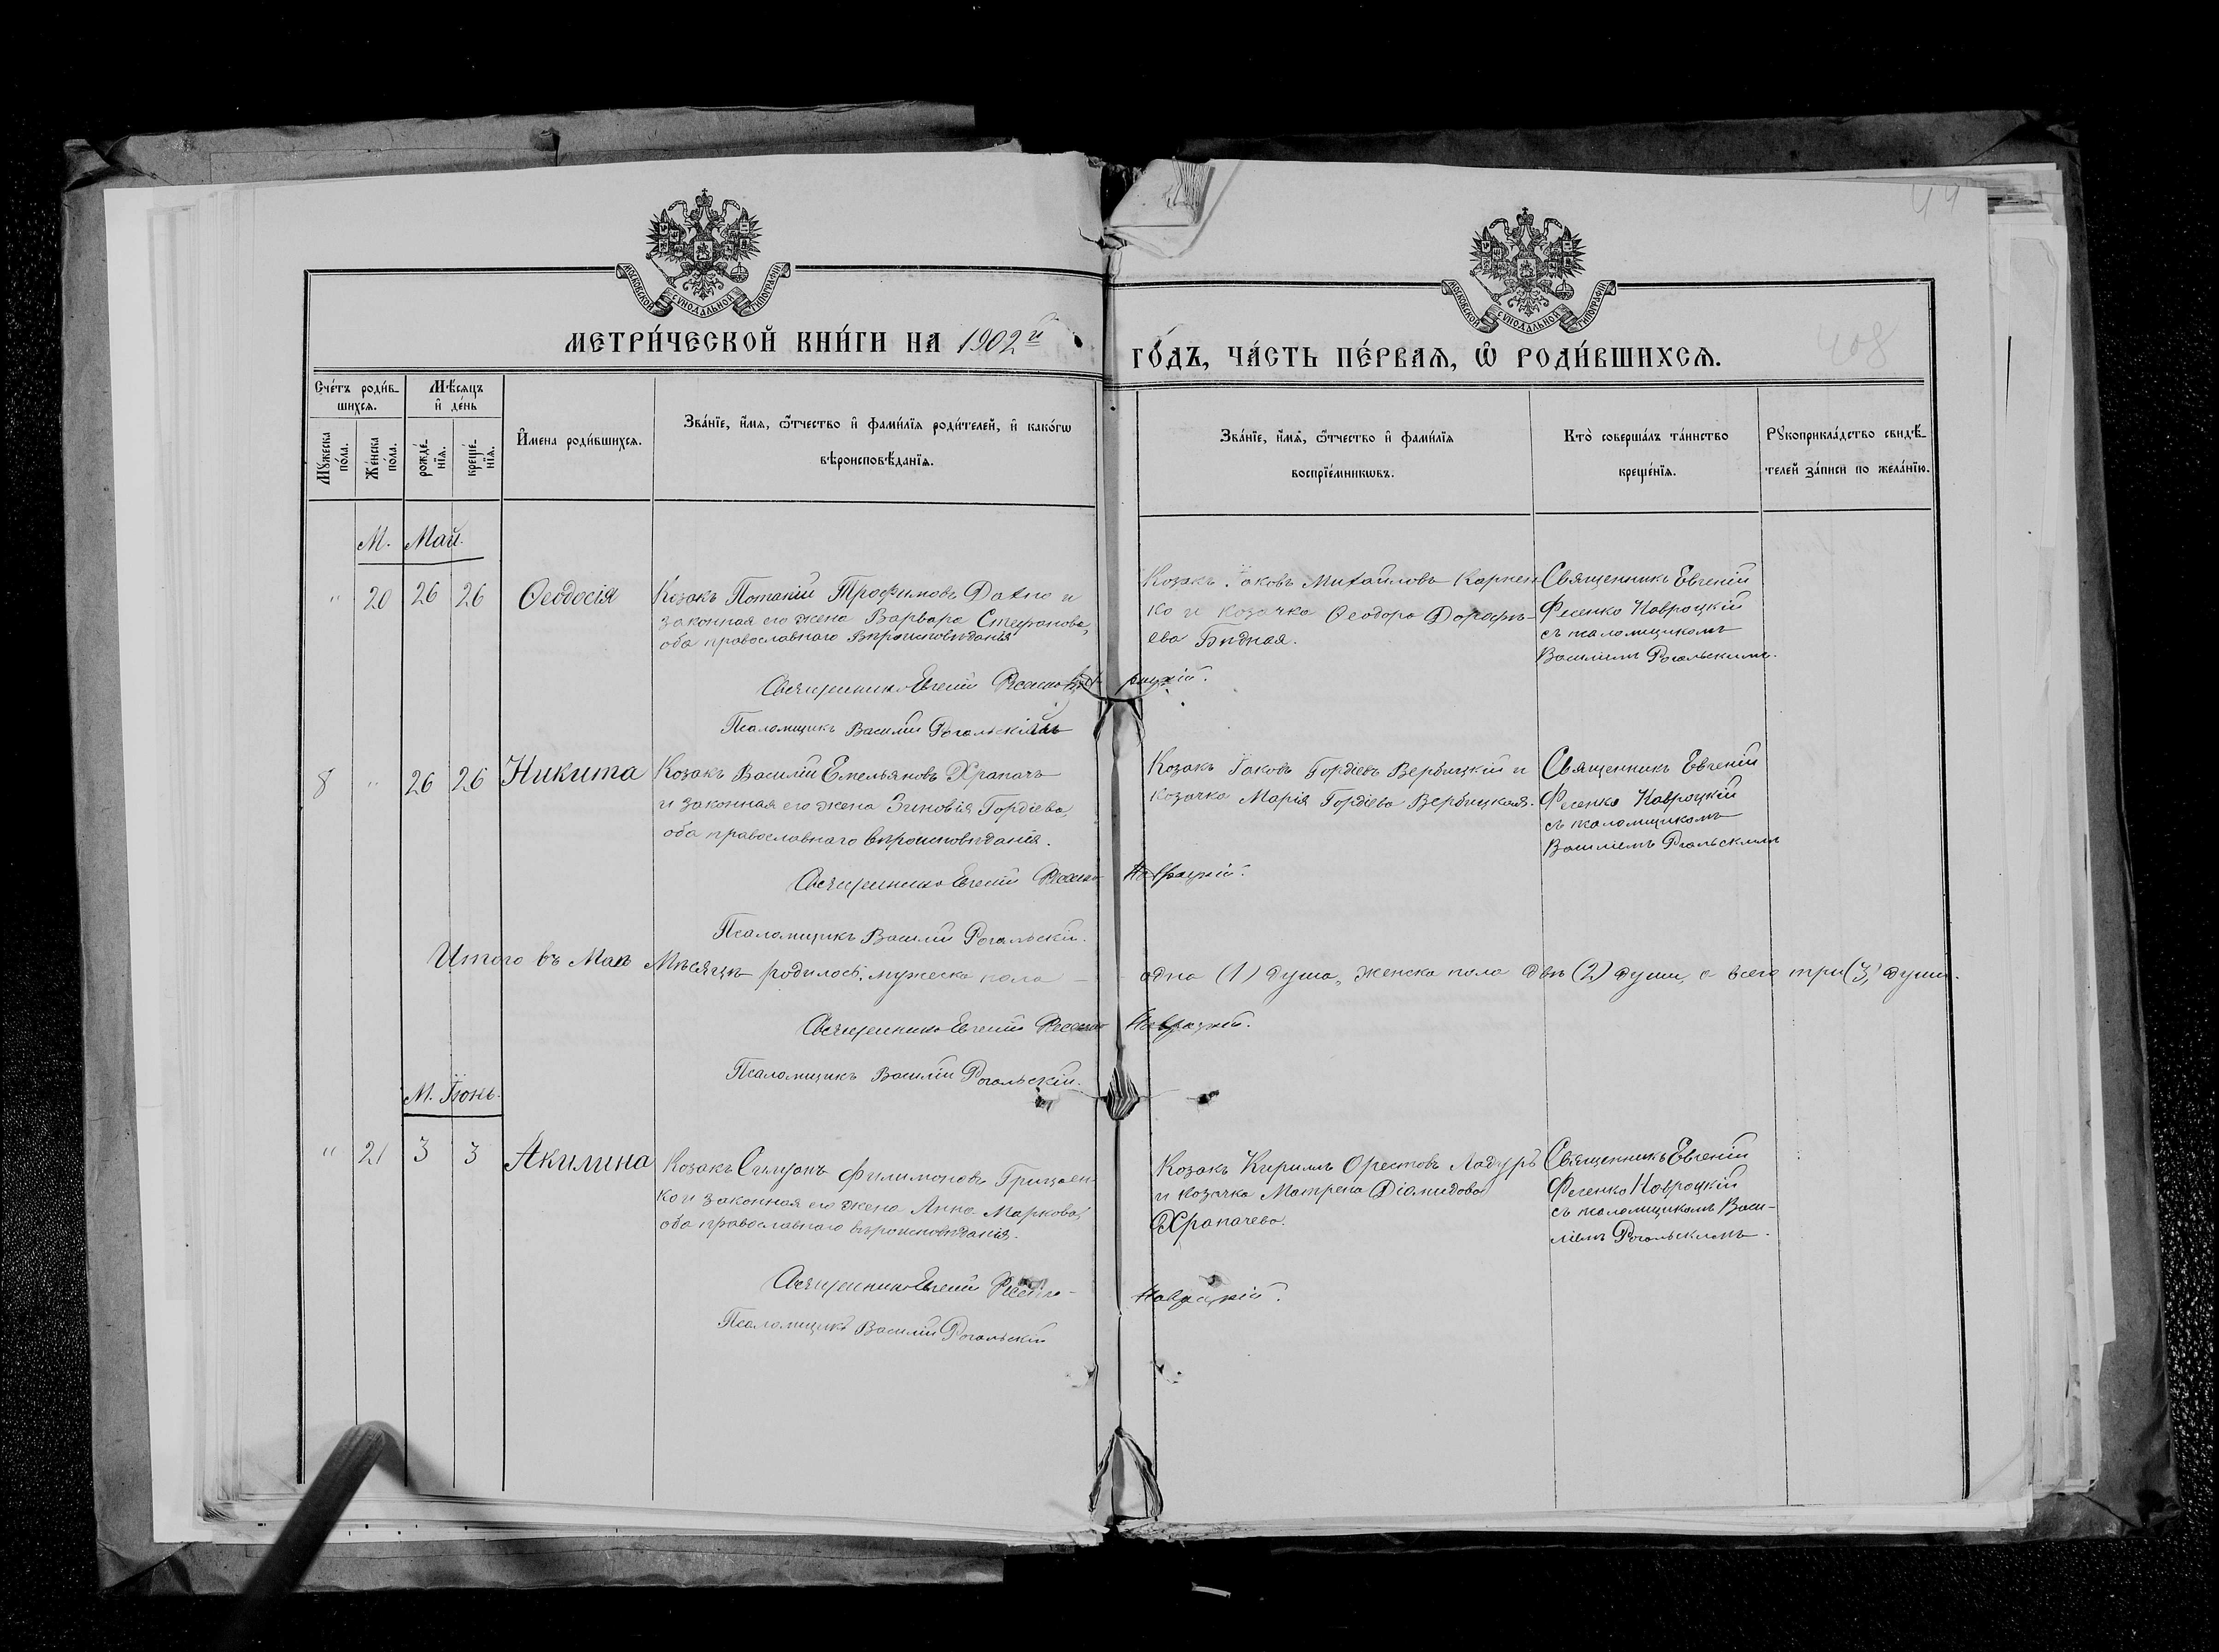 МОСКОВСКОЙ СѴНОДАЛЬНОЙ ТИПОГРАФІИ
МОСКОВСКОЙ СѴНОДАЛЬНОЙ ТИПОГРАФІИ
МЕТРИ́ЧЕСКОЙ КНИ́ГИ НА 1902й
ГО́ДЪ, ЧА́СТЬ ПЕ́РВАѦ, Ѡ҆ РОДИ́ВШИХСѦ.
408
Сче́тъ роди́в-
шихсѧ.
Мѣ́сѧцъ
и҆ де́нь
Мꙋ́жеска
по́ла.
Же́нска
по́ла.
рожде́-
нїѧ.
креще́-
нїѧ.
И҆мена роди́вшихсѧ.
Зва́нїе, и҆́мѧ, ѻ҆́тчество и҆ фами́лїѧ роди́телей, и҆ како́гѡ
вѣроисповѣ́данїѧ.
Зва́нїе, и҆́мѧ, ѻ҆́тчество и҆ фами́лїѧ
воспрїе́мникѡвъ.
Кто̀ соверша́лъ та́инство
креще́нїѧ.
Рꙋкоприкла́дство свидѣ́-
телей за́писи по жела́нїю.
М. Май.
" 20 26 26 Ѳеодосія
Козакъ Потапій Трофимовъ Дахно и
законная его жена Варвара Стефанова,
оба православнаго Вѣроисповѣданія
Козакъ Іаковъ Михайловъ Карпен
ка и козачка Ѳеодора Дорофѣ-
ева Бѣдная.
Священникъ Евгеній
Фесенко Навроцкій
съ псаломщикомъ
Василіемъ Рогальскимъ.
Священникъ Евгеній Фесенко Навроцкій.
Псаломщикъ Василій Рогальскій
8 " 26 26 Никита
Козакъ Василій Емельяновъ Храпачъ
и законная его жена Зиновія Гордіева,
оба православнаго вѣроисповѣданія.
Козакъ Іаковъ Гордіевъ Вербицкій и
козачка Марія Гордіева Вербицкая.
Священникъ Евгеній
Фесенко Навроцкій
съ псаломщикомъ
Василіемъ Рогальскимъ
Священникъ Евгеній Фесенко Навроцкій.
Псаломщикъ Василій Рогальскій.
Итого въ Маѣ Мѣсяцѣ родилось, мужеска пола — одна (1) душа, женска пола двѣ (2) души, а всего три (3) души.
Священникъ Евгеній Фесенко Навроцкій.
Псаломщикъ Василій Рогальскій.
М. Іюнь.
" 21 3 3 Акилина
Козакъ Симеонъ Филимоновъ Грицаен-
ко и законная его жена Анна Маркова,
оба православнаго вѣроисповѣданія.
Козакъ Кириллъ Орестовъ Ладуръ
и козачка Матрена Діомидова
Храпачева.
Священникъ Евгеній
Фесенко Навроцкій
съ псаломщикомъ Васи-
ліемъ Рогальскимъ.
Священникъ Евгеній Фесенко - Навроцкій.
Псаломщикъ Василій Рогальскій